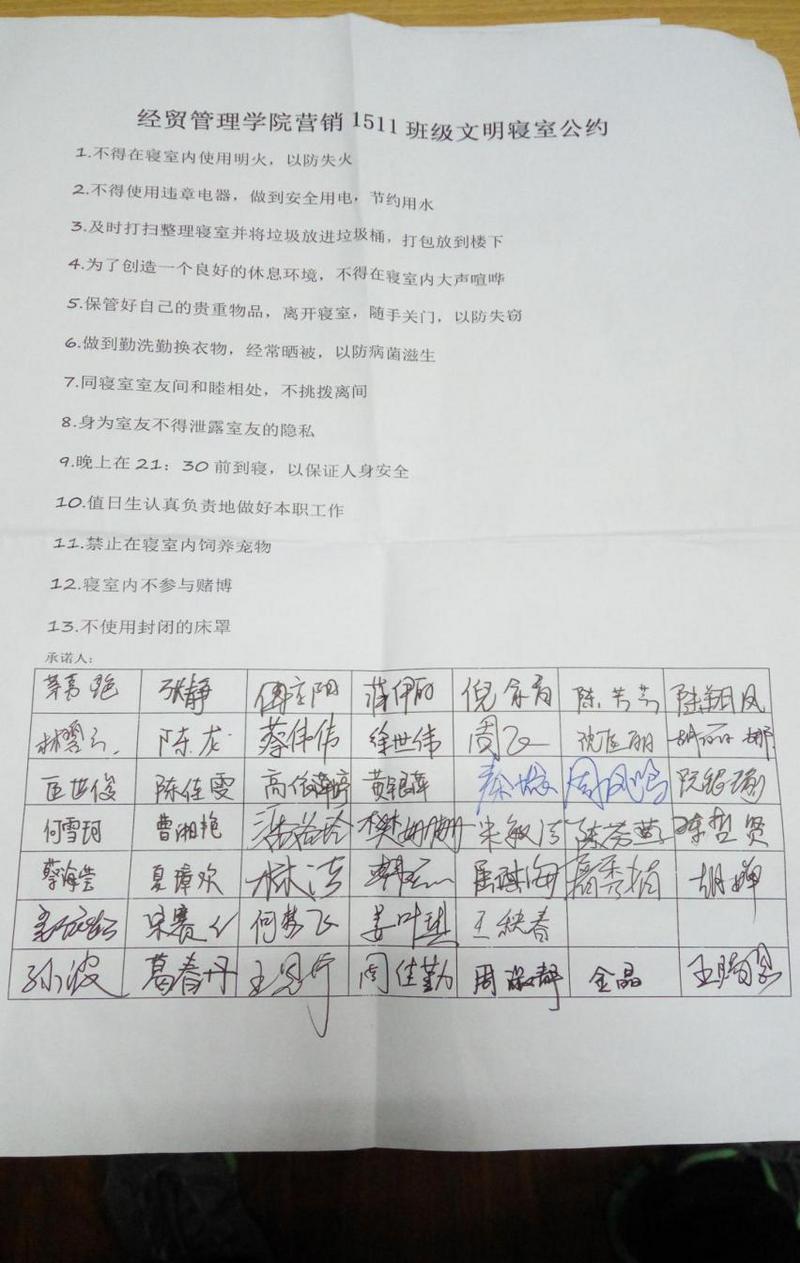 经贸管理学院营销1511班级文明寝室公约
1.不得在寝室内使用明火，以防失火
2.不得使用违章电器，做到安全用电，节约用水
3.及时打扫整理寝室并将垃圾放进垃圾桶，打包放到楼下
4.为了创造一个良好的休息环境，不得在寝室内大声喧哗
5.保管好自己的贵重物品，离开寝室，随手关门，以防失窃
6.做到勤洗勤换衣物，经常晒被，以防病菌滋生
7.同寝室室友间和睦相处，不挑拨离间
8.身为室友不得泄露室友的隐私
9.晚上在21：30前到寝，以保证人身安全
10.值日生认真负责地做好本职工作
11.禁止在寝室内饲养宠物
12.寝室内不参与赌博
13.不使用封闭的床罩
承诺人：
张静 蒋伊昀 陈芳芳
陈龙 蔡伟伟 徐世伟 周飞 胡丽娜
匡世俊 陈佳雯 黄银萍 周凤鸣
何雪珂 曹湘艳 樊姗姗 陈哲贤
蔡海莹 夏璋欢 林洁 胡婵
何梦飞 姜叶琪 王秧春
孙波 葛春丹 周佳勤 周淑静 金晶